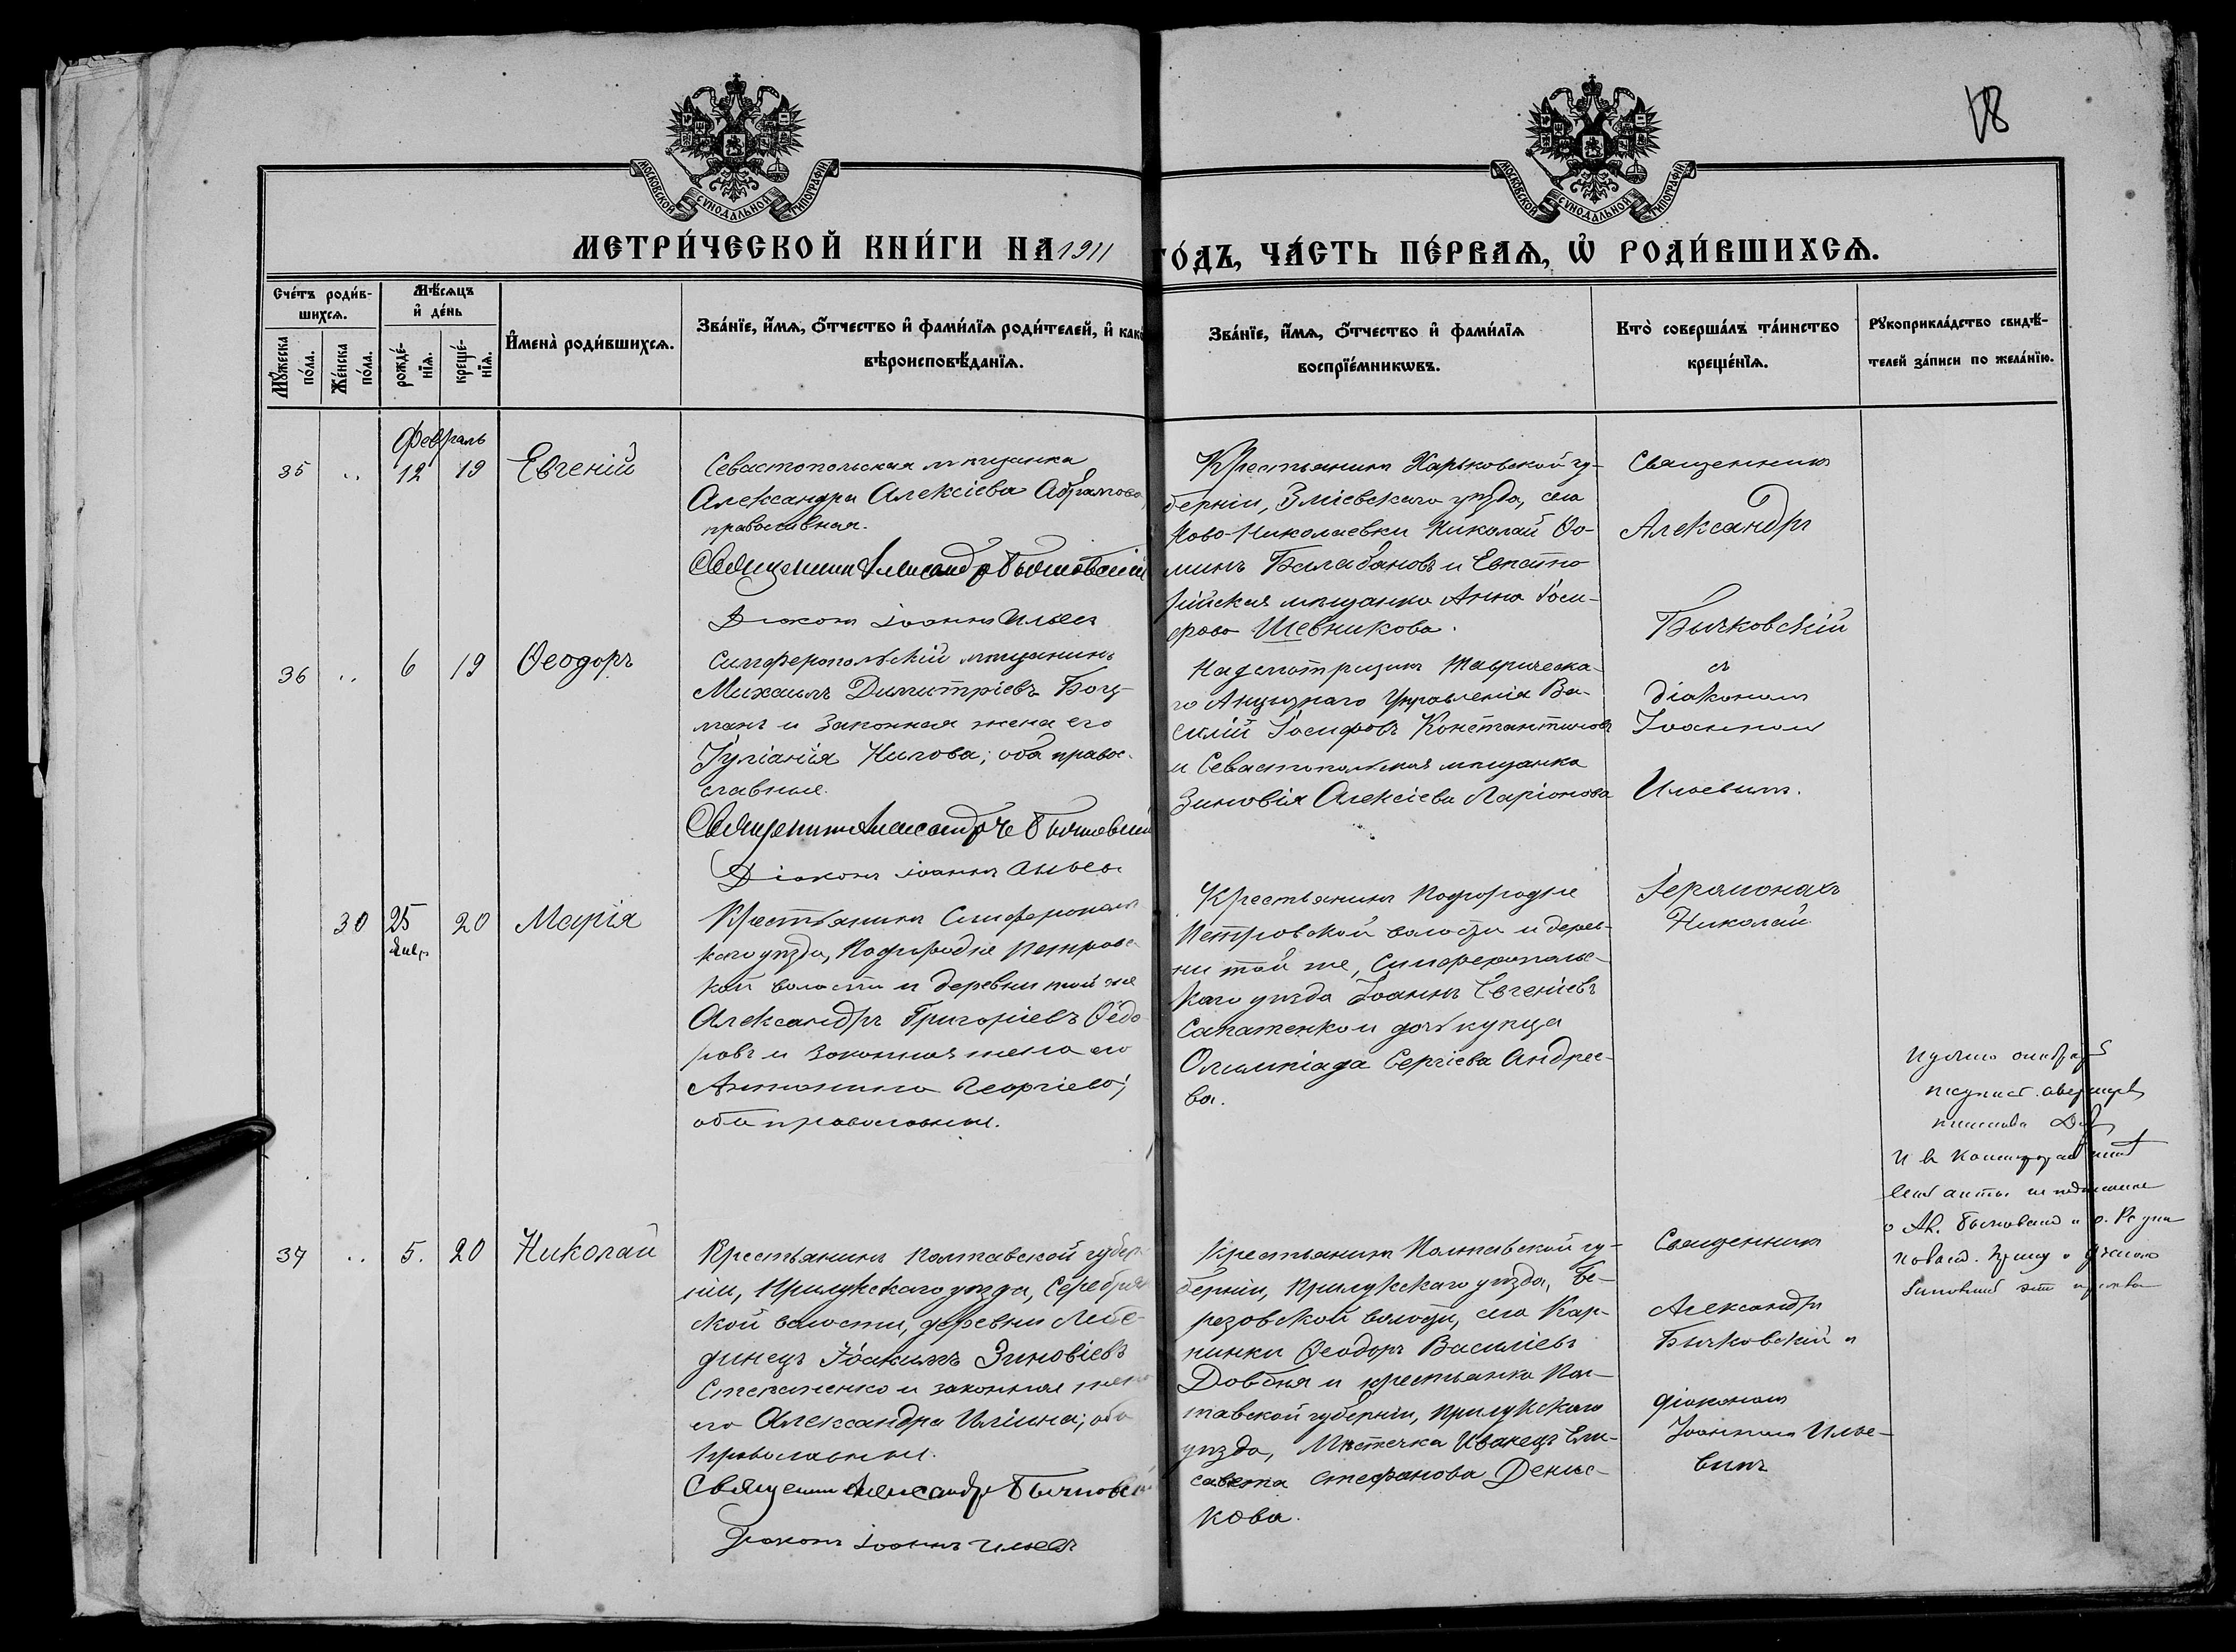 18
МОСКОВСКОЙ СУНОДАЛЬНОЙ ТИПОГРАФІИ
МОСКОВСКОЙ СУНОДАЛЬНОЙ ТИПОГРАФІИ
МЕТРИ́ЧЕСКОЙ КНИ́ГИ НА 1911 ГО́ДЪ, ЧА́СТЬ ПЕ́РВАѦ, Ѡ҆ РОДИ́ВШИХСѦ.
Сче́тъ роди́в-
шихсѧ.
Мꙋжеска
по́ла.
Же́нска
по́ла.
Мѣ́сѧцъ
и҆ де́нь
рожде́-
нїѧ.
креще́-
нїѧ.
И҆мена̀ роди́вшихсѧ.
Зва́нїе, и҆́мѧ, ѻ҆́тчество и҆ фами́лїѧ роди́телей, и҆ како
вѣроисповѣ́данїѧ.
Зва́нїе, и҆́мѧ, ѻ҆́тчество и҆ фами́лїѧ
воспрїе́мникѡвъ.
Кто̀ соверша́лъ та́инство
креще́нїѧ.
Рꙋкоприкла́дство свидѣ́-
телей за́писи по жела́нїю.
Февраль
35 .. 12 19 Евгеній
Севастопольская мѣщанка
Александра Алексіева Абрамова,
православная.
Священникъ Александръ Бычковскій
Діаконъ Іоаннъ Ильевъ
Крестьянинъ Харьковской гу-
берніи, Зміевскаго уѣзда, села
Ново-Николаевки Николай Ѳо-
минъ Балабановъ и Евпато
рійская мѣщанка Анна Іоси-
фова Шевникова.
Священникъ
Александръ
Бычковскій
съ
діакономъ
Іоанномъ
Ильевымъ.
36 .. 6 19 Ѳеодоръ
Симферопольскій мѣщанинъ
Михаилъ Димитріевъ Боц-
манъ и законная жена его
Іуліанія Нилова; оба право-
славные.
Священникъ Александръ Бычковскій
Діаконъ Іоаннъ Ильевъ
Надсмотрщикъ Таврическа-
го Акцизнаго Управленія Ва-
силій Іосифовъ Константиновъ
и Севастопольская мѣщанка
Зиновія Алексіева Ларіонова
30 25 20 Марія
Янв.
Крестьянинъ Симферополь
скаго уѣзда, Подгородне Петровс-
кой волости и деревни той же
Александръ Григоріевъ Ѳедо-
ровъ и законная жена его
Антонина Георгіева;
оба православные.
Крестьянинъ Подгородне
Петровской волости и дерев-
ни той же, Симферополь-
скаго уѣзда Іоаннъ Евгеніевъ
Сапатенко и дочь купца
Олимпіада Сергіева Андрее-
ва.
Іеромонахъ
Николай
37 .. 5. 20 Николай
Крестьянинъ Полтавской губер-
ніи, Прилукскаго уѣзда, Серебрян
ской волости, деревни Лебе-
динецъ Іоакимъ Зиновіевъ
Степаненко и законная жена
его Александра Иліина; оба
православные.
Священникъ Александръ Бычковскій
Діаконъ Іоаннъ Ильевъ
Крестьянинъ Полтавской гу-
берніи, Прилукскаго уѣзда, Бе-
резовской волости, села Кар-
пинки Ѳеодоръ Василіевъ
Довбня и крестьянка Пол-
тавской губерніи, Прилукскаго
уѣзда, Мѣстечка Иванецъ Ели-
савета Стефанова Денис-
кова.
Священникъ
Александръ
Бычковскій и
діакономъ
Іоанномъ Илье-
вымъ